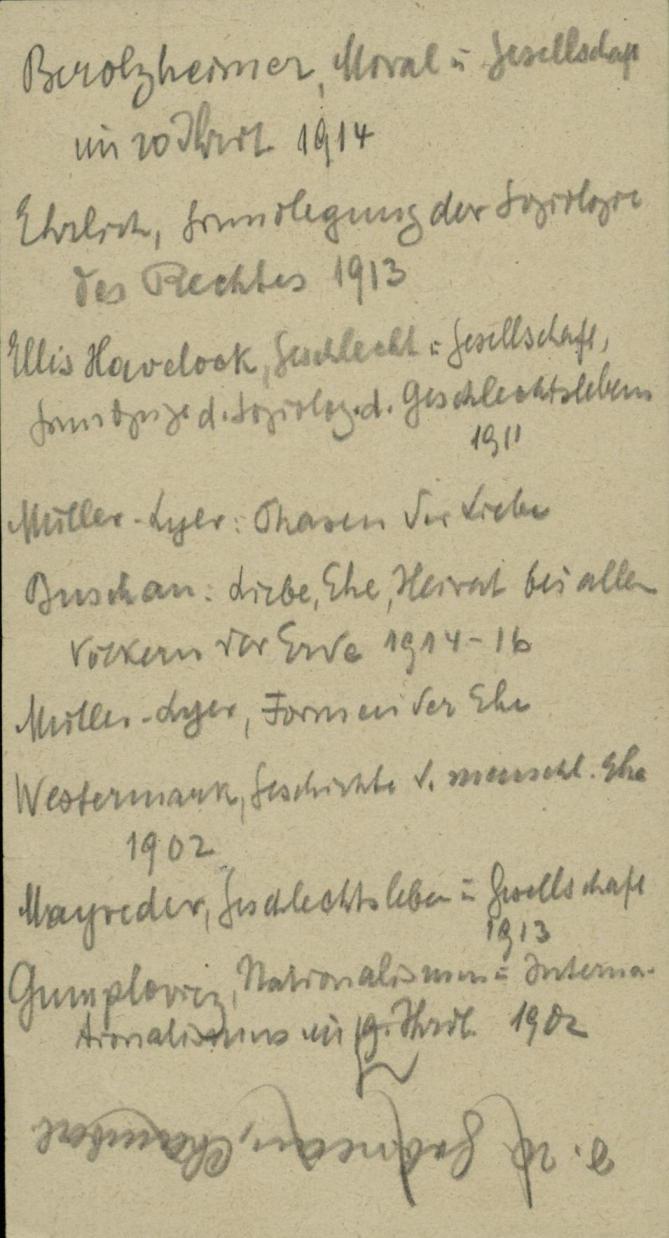 Berolzheimer, Moral u Gesellschaft
im 20 Jhrdt. 1914
Ehrlich, Grundlegung der Soziologie
des Rechtes 1913
Ellis Havelock, Geschlecht u Gesellschaft,
Grundzüge d. Soziolog. d. Geschlechtslebens
1911
Müller-Lyer: Phasen der Liebe
Buschan: Liebe, Ehe, Heirat bei allen
Völkern der Erde 1914-16
Müller-Lyer, Formen der Ehe
Westermark, Geschichte d. menschl. Ehe
1902
Mayreder, Geschlechtsleben u Gesellschaft
1913
Gumplovicz, Nationalismus u Interna-
tionalismus im 19. Jhrdt. 1902